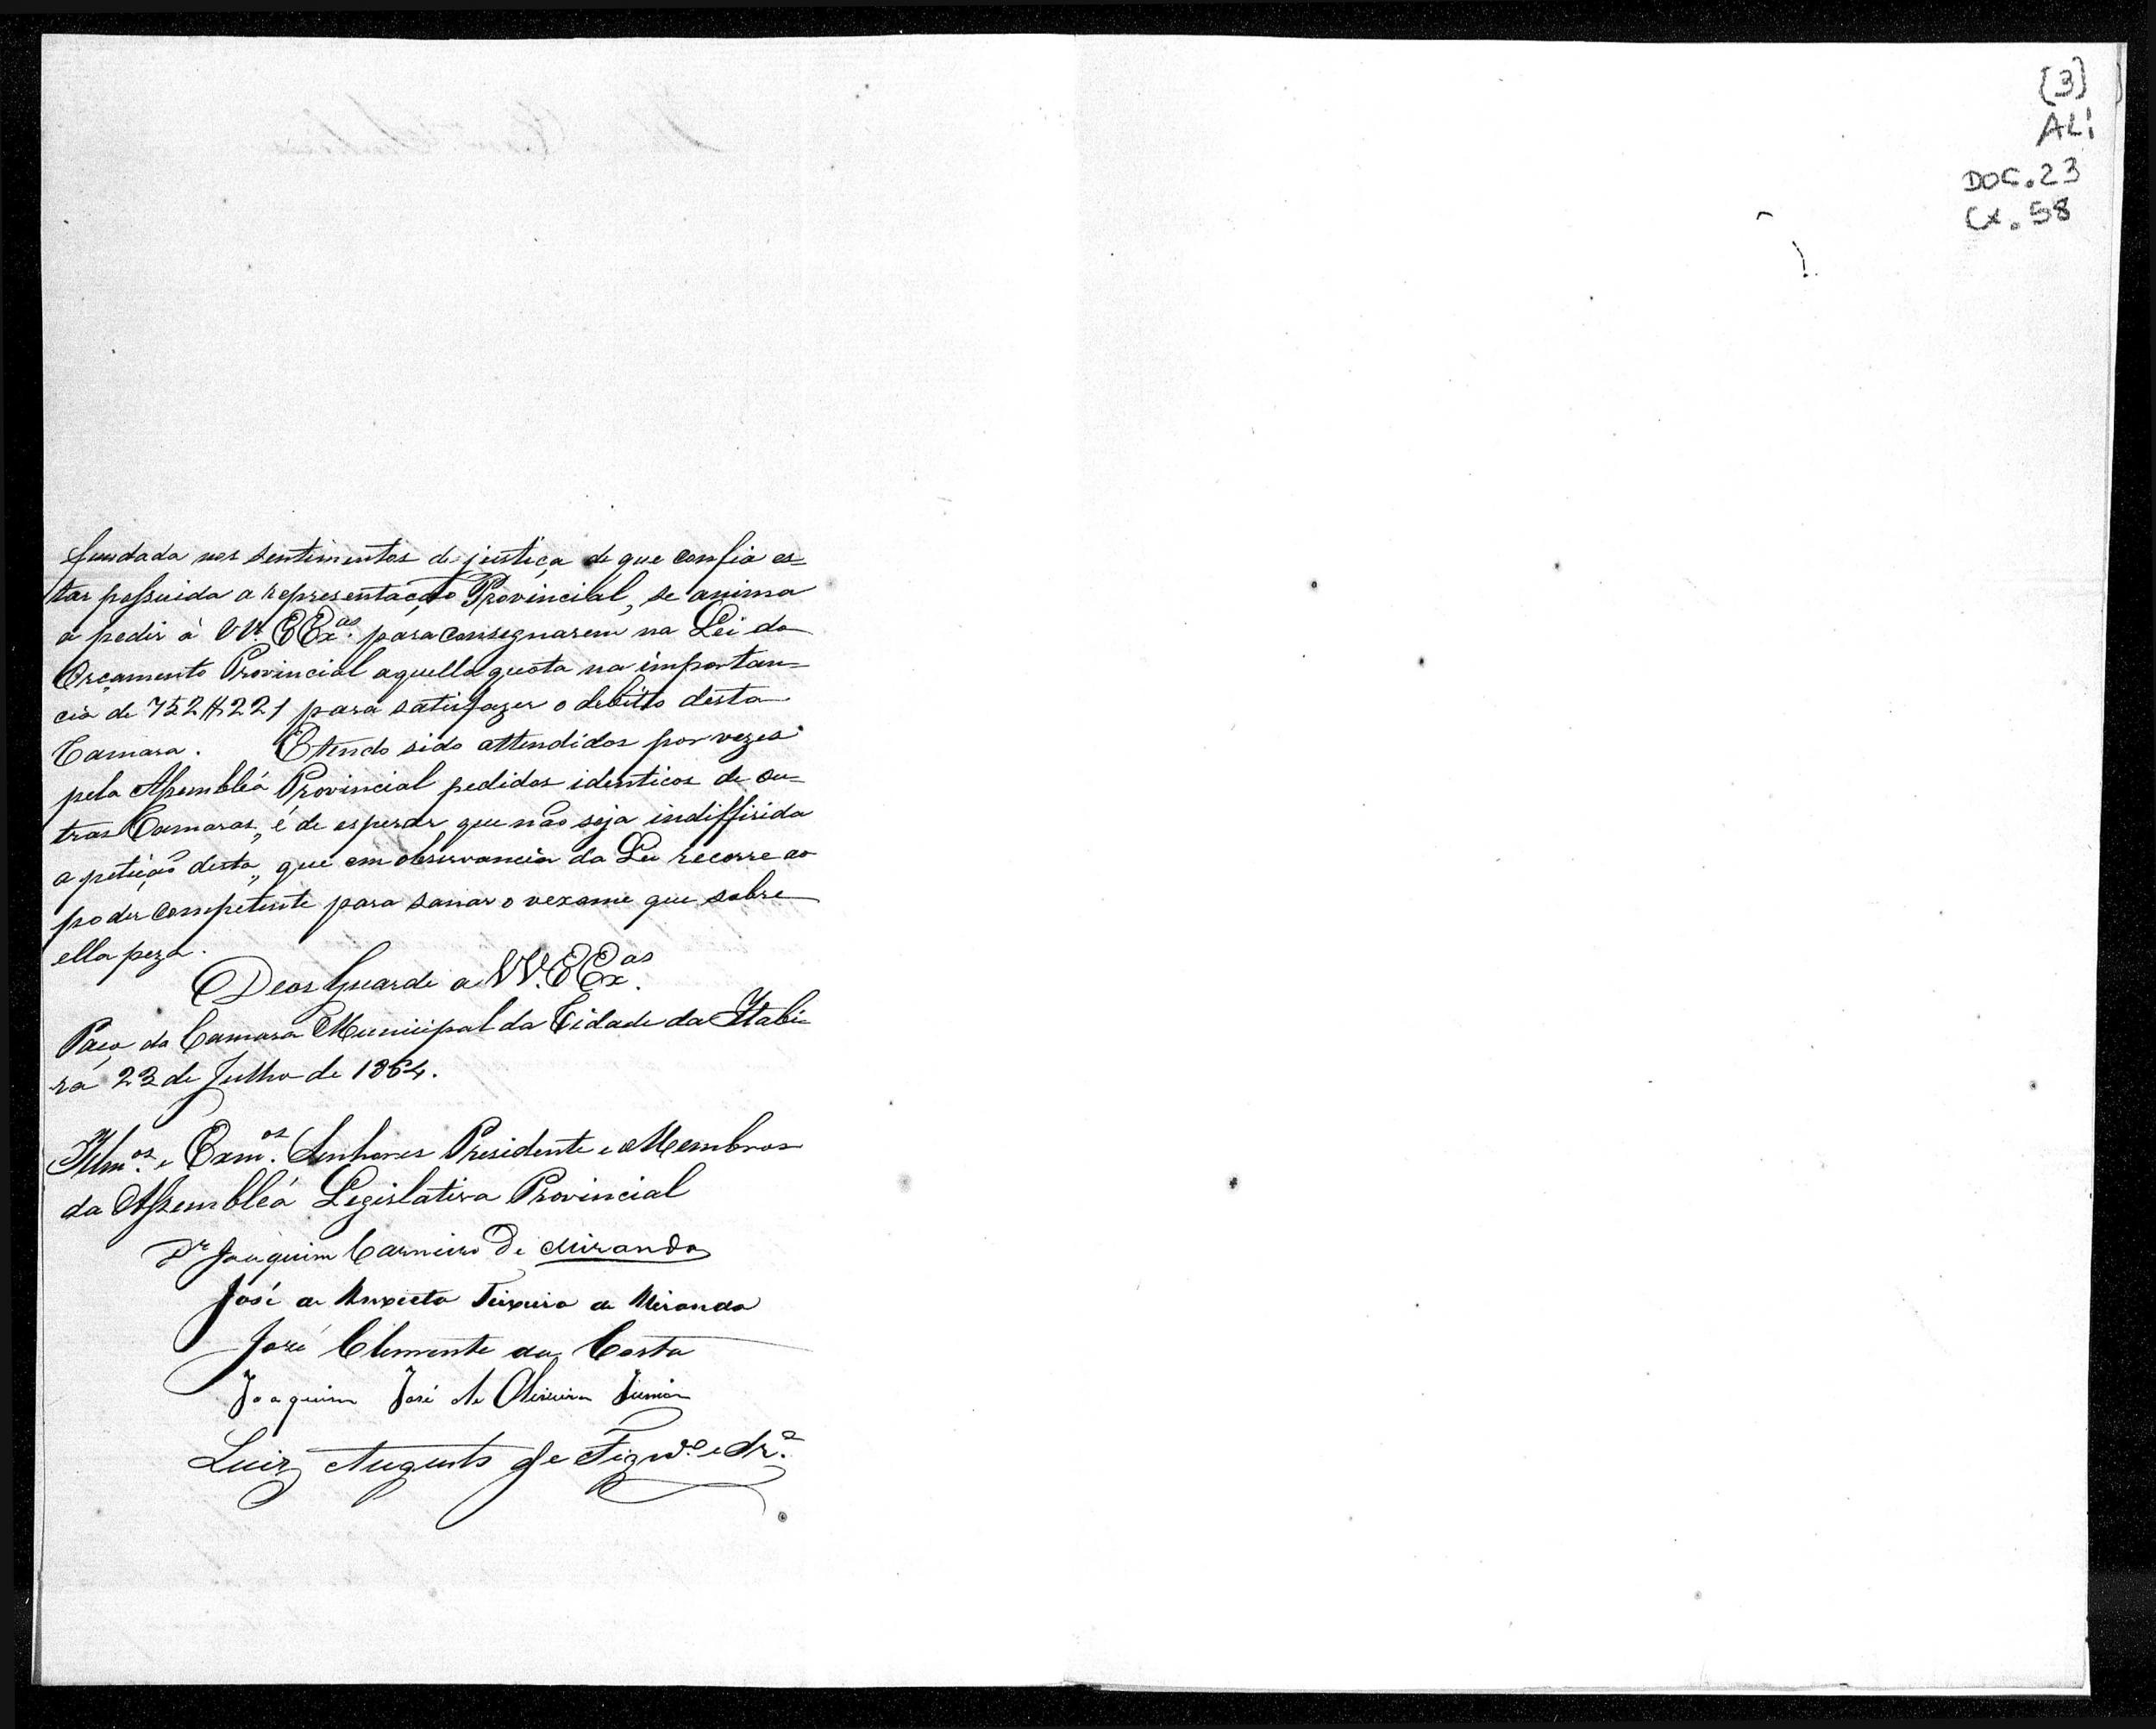 fundada nos sentimentos de justiça de que confia es=
tar possuida a representação Provincial, se anima
a pedir à VV. EEx.as para consegnarem na Lei do
Orçamento Provincial aquella quota na importan=
cia de 752$221 para satisfazer o debitto desta
Camara. E tendo sido attendidos por vezes
pela Assembléa Provincial pedidos identicos de ou=
tras Camaras, é de esperar que não seja indiffirida
a petição desta, que em observancia da Lei recorre ao
poder competente para sanar o vexame que sobre
ella peza.
Deos Guarde a VV. EEx.as
Paço da Camara Municipal da Cidade da Itabi=
ra 23 de Julho de 1864.
Illm.os e Exm.os Senhores Presidente e Membros
da Assembléa Legislativa Provincial
Dr Joaquim Carneiro de Miranda
José de Anxieta Teixeira de Miranda
José Clemente da Costa
Joaquim José de Oliveira Junior
Luiz Augusto de Figrd.o
(3)
AL
DOC. 23
Cx. 58